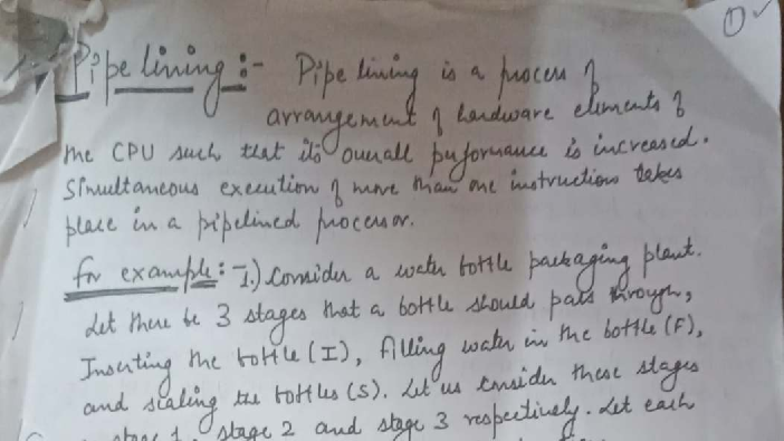 1
Pipelining :- Pipelining is a process of
arrangement of hardware elements of
the CPU such that its overall performance is increased.
Simultaneous execution of more than one instruction takes
place in a pipelined processor.
for example :- 1.) Consider a water bottle packaging plant.
Let there be 3 stages that a bottle should pass through,
Inserting the bottle (I), filling water in the bottle (F),
and sealing the bottles (S). Let us consider these stages
stage 1, stage 2 and stage 3 respectively. Let each